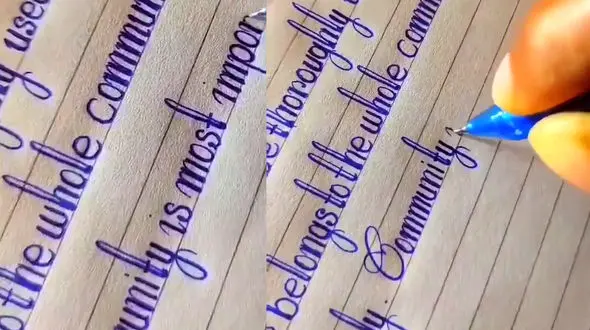 the whole commun
munity is most impor
thoroughly
belongs to the whole comm
Community